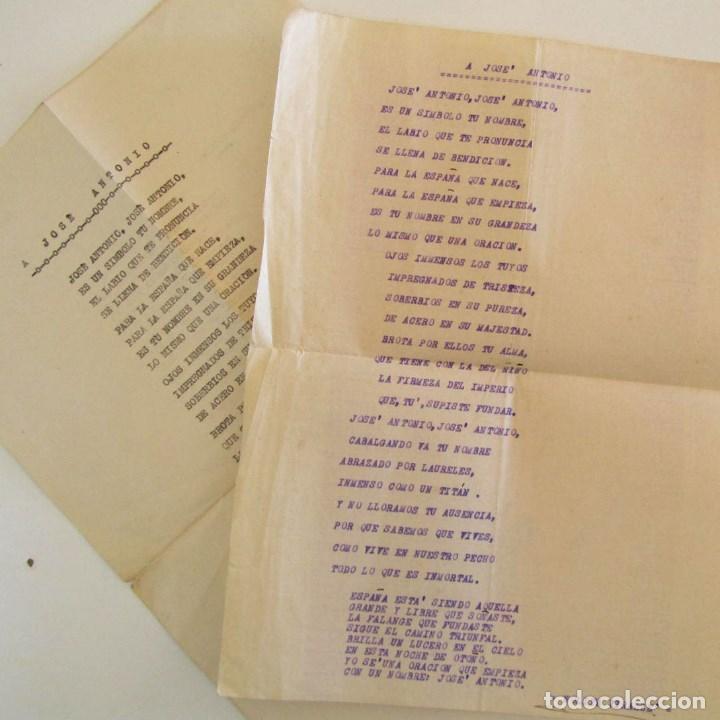 A JOSE' ANTONIO
JOSE' ANTONIO, JOSE' ANTONIO,
ES UN SIMBOLO TU NOMBRE,
EL LABIO QUE TE PRONUNCIA
SE LLENA DE BENDICION.
PARA LA ESPAÑA QUE NACE,
PARA LA ESPAÑA QUE EMPIEZA,
ES TU NOMBRE EN SU GRANDEZA
LO MISMO QUE UNA ORACION.
OJOS IMMENSOS LOS TUYOS
IMPREGNADOS DE TRISTEZA,
SOBERBIOS EN SU PUREZA,
DE ACERO EN SU MAJESTAD.
BROTA POR ELLOS TU ALMA,
QUE TIENE CON LA DEL NIÑO
LA FIRMEZA DEL IMPERIO
QUE, TU', SUPISTE FUNDAR.
JOSE' ANTONIO, JOSE' ANTONIO,
CABALGANDO VA TU NOMBRE
ABRAZADO POR LAURELES,
INMENSO COMO UN TITÁN.
Y NO LLORAMOS TU AUSENCIA,
POR QUE SABEMOS QUE VIVES,
COMO VIVE EN NUESTRO PECHO
TODO LO QUE ES INMORTAL.
ESPAÑA ESTA' SIENDO AQUELLA
GRANDE Y LIBRE QUE SOÑASTE,
LA FALANGE QUE FUNDASTE
SIGUE EL CAMINO TRIUNFAL.
BRILLA UN LUCERO EN EL CIELO
EN ESTA NOCHE DE OTOÑO.
YO SE' UNA ORACION QUE EMPIEZA
CON UN NOMBRE: JOSE' ANTONIO.
A JOSE ANTONIO
JOSÈ ANTONIO, JOSÈ ANTONIO,
ES UN SIMBOLO TU NOMBRE,
EL LABIO QUE TE PRONUNCIA
SE LLENA DE BENDICION.
PARA LA ESPAÑA QUE NACE,
PARA LA ESPAÑA QUE EMPIEZA,
ES TU NOMBRE EN SU GRANDEZA
LO MISMO QUE UNA ORACION.
OJOS INMENSOS LOS
IMPREGNADOS DE
SOBERBIOS EN
DE ACERO EN
BROTA
QUE
todocoleccion.net